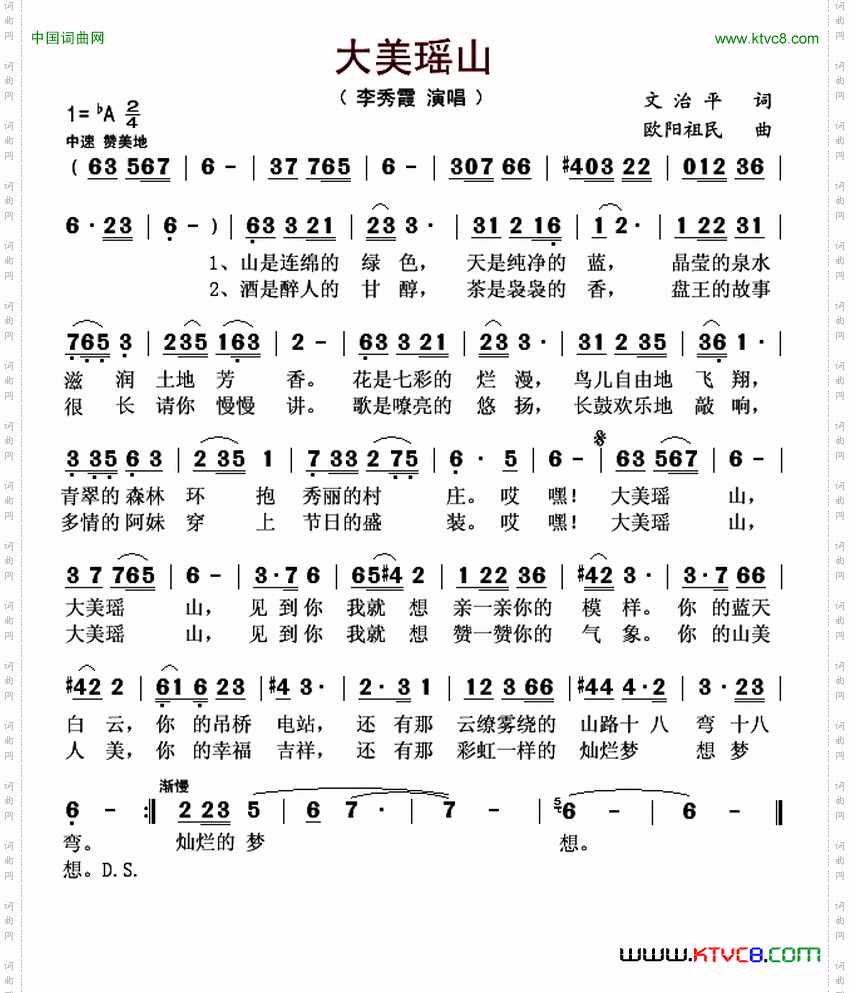 中国词曲网
www.ktvc8.com
大美瑶山
（李秀霞 演唱）
文治平 词
欧阳祖民 曲
1=♭A 2/4
中速 赞美地
( 63 567 | 6 - | 37 765 | 6 - | 307 66 | #403 22 | 012 36 |
6 · 23 | 6 - ) | 63 3 21 | 23 3 · | 31 2 16 | 1 2 · | 1 22 31 |
1、山是连绵的 绿 色， 天是纯净的 蓝， 晶莹的泉水
2、酒是醉人的 甘 醇， 茶是袅袅的 香， 盘王的故事
765 3 | 235 163 | 2 - | 63 3 21 | 23 3 · | 31 2 35 | 36 1 · |
滋 润 土地 芳 香。 花是七彩的 烂 漫， 鸟儿自由地 飞 翔，
很 长 请你 慢慢 讲。 歌是嘹亮的 悠 扬， 长鼓欢乐地 敲 响，
3 35 6 3 | 2 35 1 | 7 33 2 75 | 6 · 5 | 6 - | 63 567 | 6 - |
青翠的 森林 环 抱 秀丽的村 庄。哎 嘿！ 大美瑶 山，
多情的 阿妹 穿 上 节日的盛 装。哎 嘿！ 大美瑶 山，
3 7 765 | 6 - | 3·7 6 | 65#4 2 | 1 22 36 | #42 3 · | 3·7 66 |
大美瑶 山， 见 到你 我就 想 亲一亲你的 模 样。 你 的蓝天
大美瑶 山， 见 到你 我就 想 赞一赞你的 气 象。 你 的山美
#42 2 | 61 6 23 | #4 3 · | 2·3 1 | 12 3 66 | #44 4·2 | 3 · 23 |
白 云，你 的吊桥 电站， 还 有那 云缭雾绕的 山路十 八 弯 十八
人 美，你 的幸福 吉祥， 还 有那 彩虹一样的 灿烂梦 想 梦
渐慢
6 - :‖ 2 23 5 | 6 7 · | 7 - | 5 6 - | 6 - ‖
弯。 灿烂的 梦 想。
想。D.S.
www.KTVC8.COM